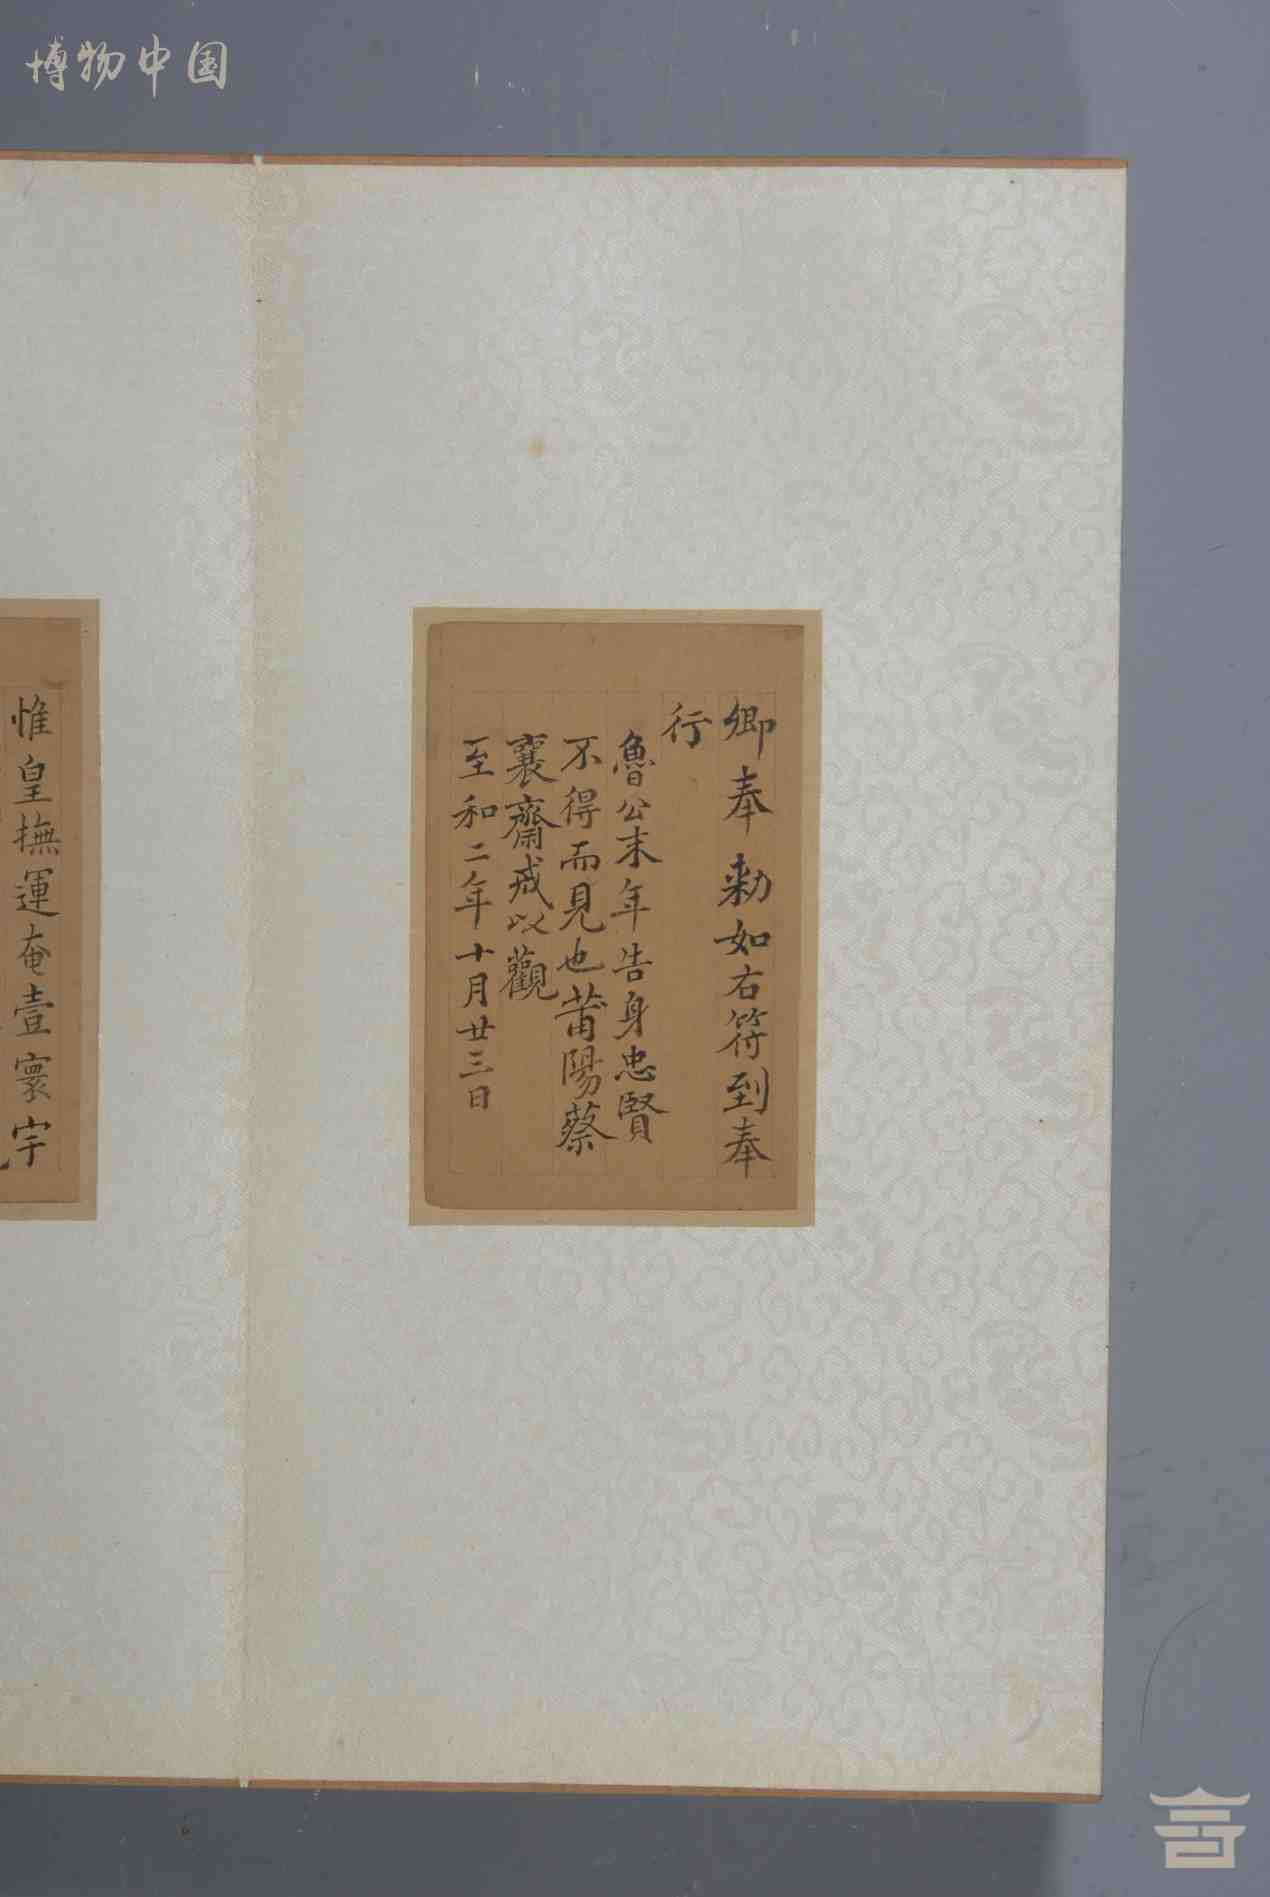 博物中国
卿奉勅如右符到奉
行
魯公末年告身忠賢
不得而見也莆陽蔡
襄齋戒以觀
至和二年十月廿三日
惟皇撫運奄壹寰宇